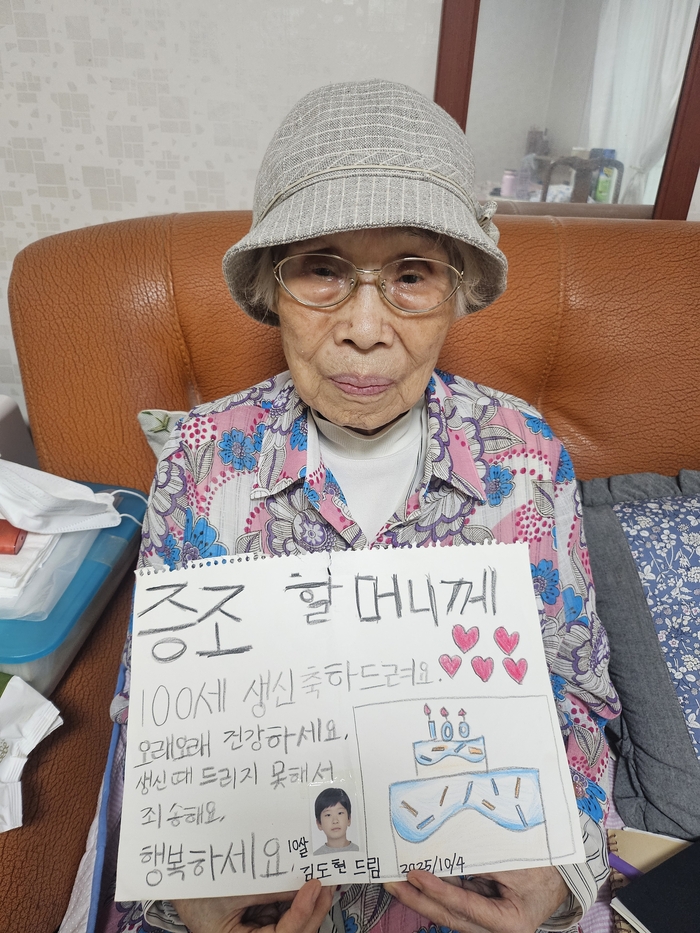 증조 할머니께
100세 생신 축하드려요.
오래오래 건강하세요.
생신때 드리지 못해서
죄송해요.
행복하세요.
10살
김도현 드림 2025/10/4
100